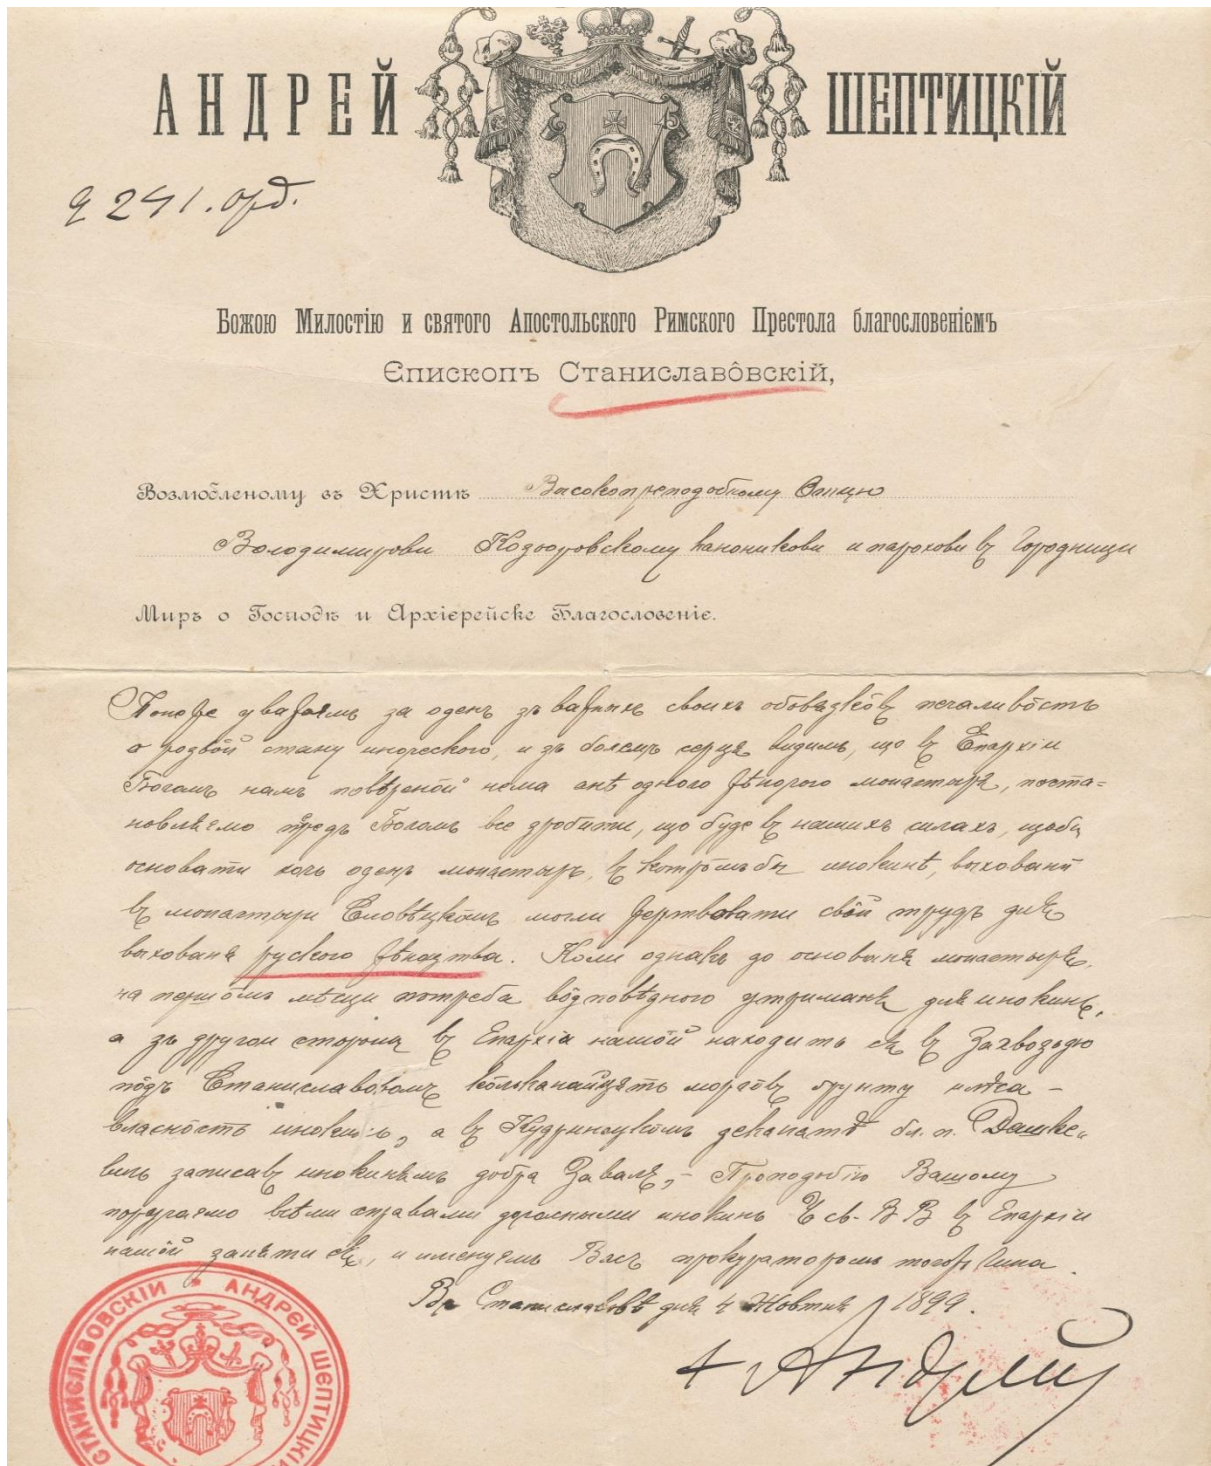 АНДРЕЙ ШЕПТИЦКІЙ
Ч 241. орд.
Божою Милостію и святого Апостольского Римского Престола благословеніемъ
Єпископъ Станиславôвскій,
Возлюбленому въ Христѣ Высокопреподобному Отцю
Володимирови Козоровскому каноникови и парохови въ Городници
Миръ о Господѣ и Архієрейске Благословеніє.
Понеже уважаємъ за оденъ зъ важныхъ своихъ обовязкôвъ печаливôсть
о розвôй стану иноческого, и зъ болемъ серця видимъ, що въ Епархіи
Богомъ намъ повѣренôй нема анѣ одного жѣночого монастыря, поста=
новляємо предъ Богомъ все зробити, що буде въ нашихъ силахъ, щобы
основати хочь оденъ монастырь, въ котрôмъ бы инокинѣ, выхованй
въ монастыри Словѣцкôмъ могли жертвовати свôй трудъ для
выхованя руского жѣноцтва. Коли однакъ до основаня монастыря
на першôмъ мѣсци потреба вôдповѣдного утриманя для инокинь,
а зъ другои стороны въ Епархіи нашôй находить ся въ Загвоздю
пôдъ Станиславовомъ кôльканайцять моргôвъ грунту яко
власнôсть инокинь, а въ Кудринецкôмъ деканатѣ бл. п. Дашке„
вичь записавъ инокинямъ добра Заваля, – Преподобію Вашому
поручаємо всѣми справами дочасными инокинь Ч св. В В въ Епархіи
нашôй заняти ся, и именуємъ Васъ прокураторомъ тогожъ Чина.
Въ Станиславовѣ дня 4 Жовтня 1899.
+ Андрей
СТАНИСЛАВОВСКІЙ • АНДРЕЙ ШЕПТИЦКІЙ